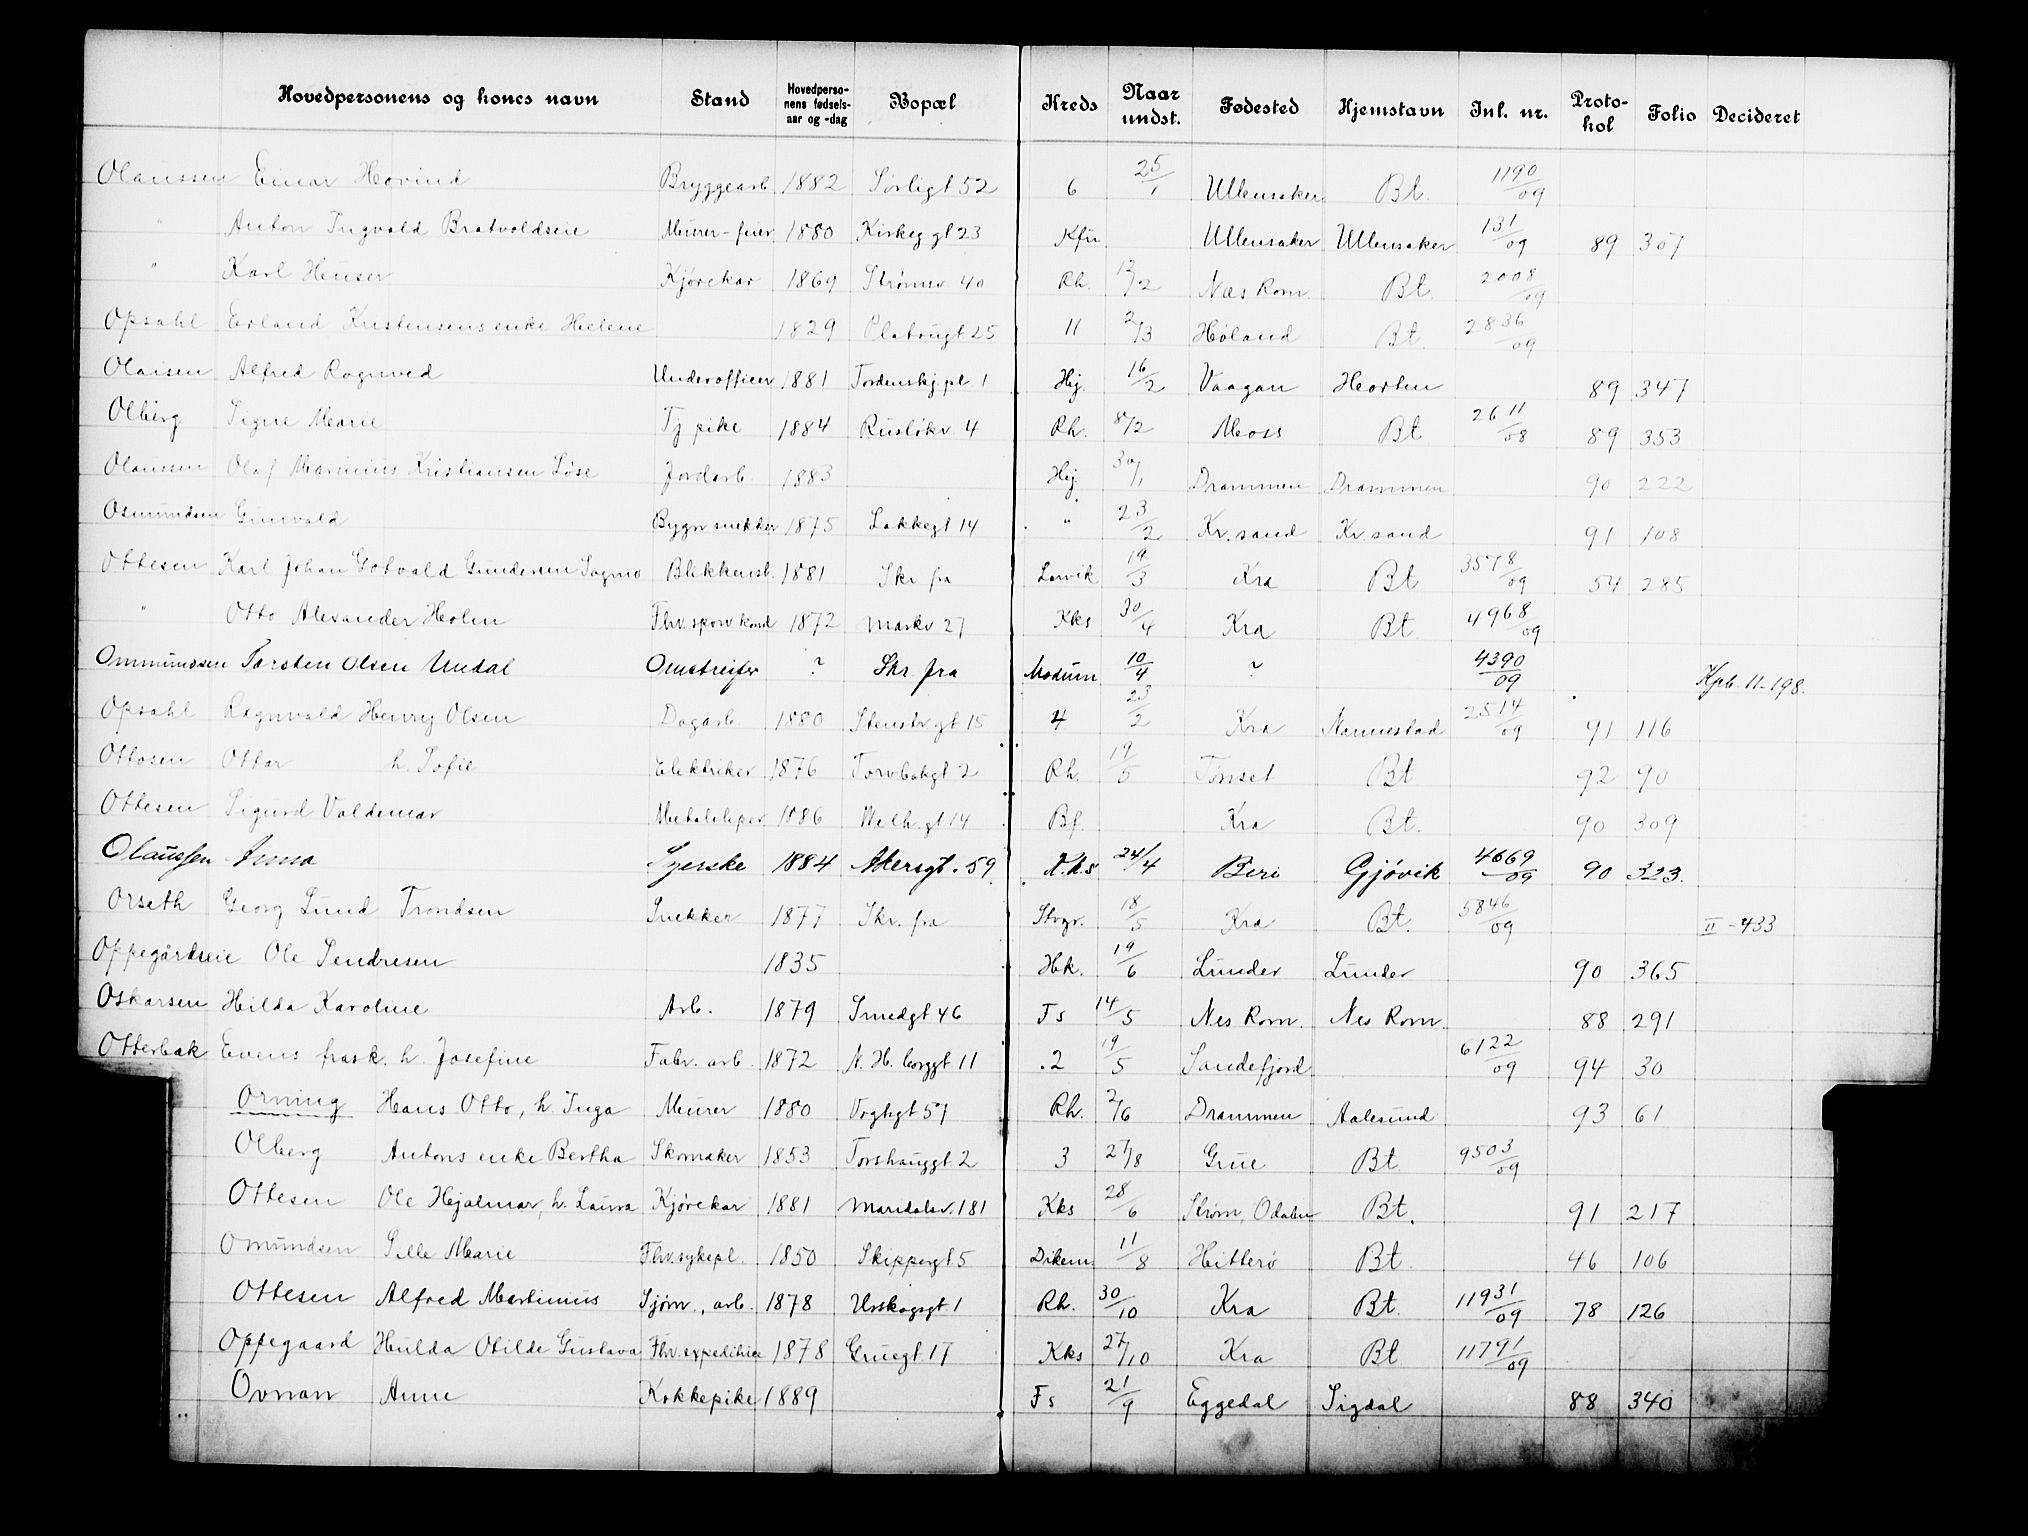 Hovedpersonens og kones navn Stand Hovedperso-nens fødsels-aar og -dag Bopæl Kreds Naar undst. Fødested Hjemstavn Inl. nr. Proto-kol Folio Decideret
Olaussen Einar Hovind Bryggearb 1882 Sørligt 52 6 25/1 Ullensaker Bt. 1190/09
" Anton Ingvald Bratvoldseie Murer-feier 1880 Kirkeg gt 23 Kfu Ullensaker Ullensaker 131/09 89 307
" Karl Heuser Kjørekar 1869 Strømsv 40 Rh. 12/2 Næs Rom. Bt. 2008/09
Opsahl Erland Kristensens enke Helene 1829 Platougt 25 11 2/3 Høland Bt. 2836/09
Olaisen Alfred Rognved Underofficer 1881 Tordenskj. pl 1 Hj. 16/2 Vaagan Horten 89 347
Olberg Signe Marie Tj pike 1884 Rusløkv. 4 Rh. 8/2 Moss Bt 2611/08 89 353
Olaussen Olaf Marinius Kristiansen Løse Jordarb. 1883 Hj. 30/1 Drammen Drammen 90 222
Osmundsen Gunvald Bygn snekker 1875 Lakkegt 14 " 23/2 Kr. sand Kr. sand 91 108
Ottesen Karl Johan Gotvald Gundersen Sagmo Blikkensl. 1881 Skr fra Larvik 19/3 Kra Bt 3578/09 54 285
" Otto Alexander Holm Fhv. sporv kond 1872 Markv 27 Kks 30/4 Kra Bt. 4968/09
Ommundsen Torsten Olsen Undal Omstreifer ? Skr fra Modum 10/4 ? 4390/09 Kpb. 11-198.
Opsahl Ragnvald Henry Olsen Dagarb. 1880 Stenstr gt 15 4 23/2 Kra Nannestad 2514/09 91 116
Ottosen Ottar h. Sofie Elektriker 1876 Torvbakgt 2 Rh. 19/5 Tønset Bt 92 90
Ottesen Sigurd Valdemar Metalsliper 1886 Welh. gt 14 Bf. Kra Bt. 90 309
Olaussen Anna Syerske 1884 Akersgt. 59 K.k.s 24/4 Biri Gjøvik 4669/09 90 323.
Orseth Georg Lund Trondsen Snekker 1877 Skr. fra Stvgr. 18/5 Kra Bt. 5846/09 II-433
Oppegårdseie Ole Sendresen 1835 Hk. 19/6 Lunder Lunder 90 365
Oskarsen Hilda Karoline Arb. 1879 Smedgt 46 Fs 14/5 Nes Rom. Nes Rom. 88 291
Otterbæk Evens frask. h. Josefine Fabr. arb. 1872 N. H. borggt 11 2 19/5 Sandefjord 6122/09 94 30
Orning Hans Otto, h. Inga Murer 1880 Vogtsgt 57 Rh. 2/6 Drammen Aalesund 93 61
Olberg Antons enke Bertha Skomaker 1853 Torshauggt. 2 3 27/8 Grue Bt. 9503/09
Ottesen Ole Hjalmar, h. Laura Kjørekar 1881 Maridalsv. 181 Kks 28/6 Strøm, Odalen Bt. 91 217
Omundsen Sille Marie Fhv. sykepl. 1850 Skippergt 5 Dikem. 11/8 Hitterø Bt. 46 106
Ottesen Alfred Martinius Sjøm., arb. 1878 Urskogsgt 1 Rh. 30/10 Kra Bt. 11931/09 78 126
Oppegaard Hulda Otilde Gustava Fhv. expeditrice 1878 Gruegt 17 Kks 27/10 Kra Bt 11791/09
Ovnan Anne Kokkepike 1889 Fs 21/9 Eggedal Sigdal 88 340